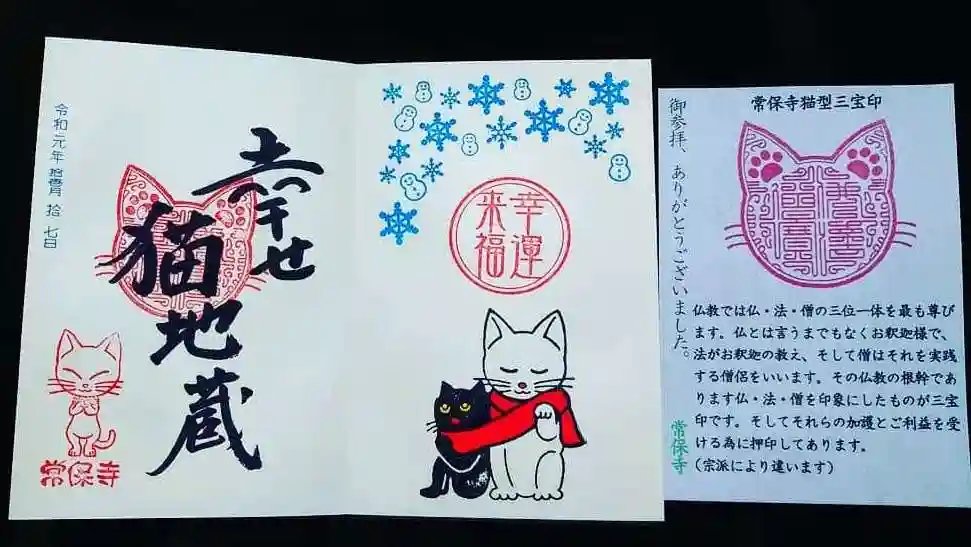 令和元年 拾 七日
幸せ
猫地蔵
常保寺
幸運
来福
御参拝、ありがとうございました。
常保寺
常保寺猫型三宝印
仏教では仏・法・僧の三位一体を最も尊び
ます。仏とは言うまでもなくお釈迦様で、
法がお釈迦の教え、そして僧はそれを実践
する僧侶をいいます。その仏教の根幹であ
ります仏・法・僧を印象にしたものが三宝
印です。そしてそれらの加護とご利益を受
ける為に押印してあります。
(宗派により違います)